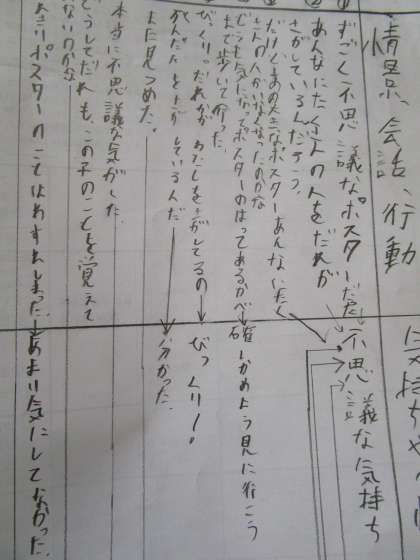 情景、会話、行動
気持ちや
すごく不思議なポスターだな
不思議な気持ち
あんなにたくさんの人をだれが
さがしているんだろう。
だけどあの大きなポスターあんなにたく
さんの人がいなくなったのかな
どうも気になってポスターのはってあるかべ
まで歩いて行った
確かめよう見に行こう
びっくり。だれかがわたしをさがしてるの
びっくりー!
しているんだ
分かった。
また見つめた。
本当に不思議な気がした
どうしてだれも、この子のことを覚えて
いないのかな
ポスターのことはわすれてしまった。
あまり気にしてなかった。